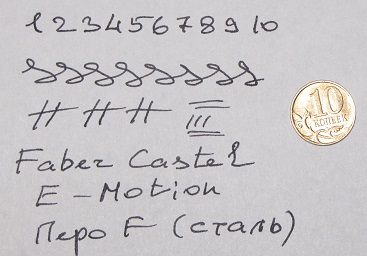 1 2 3 4 5 6 7 8 9 10
# # #
10
КОПЕЕК
Faber Castel
E - Motion
Перо F (сталь)